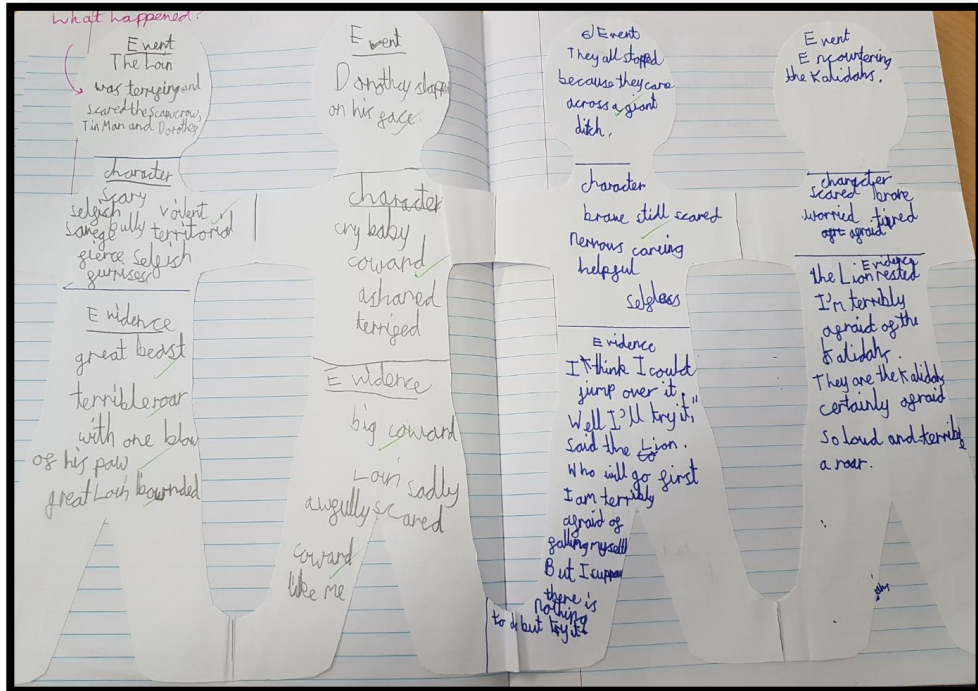 What happened?
Event
The Loin
was terrifying and
scared the scarecrow,
Tin Man and Dorothey
character
scary
selfish voilent
savege bully territorid
fierce selfish
Evidence
great beast
terrible roar
with one blow
of his paw
great Loin bounded
Event
Dorothey slapp
on his face.
character
cry baby
coward
ashared
terrifed
Evidence
big coward
Loin sadly
awfully scared
coward
like me
Event
They all stopped
because they came
across a giant
ditch.
character
brave still scared
nervous caring
helpful
selfless
Evidence
I think I could
jump over it,
Well I'll try it,"
said the Lion.
Who will go first
I am terribly
afraid of
falling myself
But I suppose
there is
nothing
to do but try it
Event
Encountering
the Kalidahs.
character
scared brave
worried tired
afraid
Evidence
the Lion rested
I'm terribly
afraid of the
Kalidahs.
They are the Kalidahs
certainly afraid
so loud and terrible
a roar.